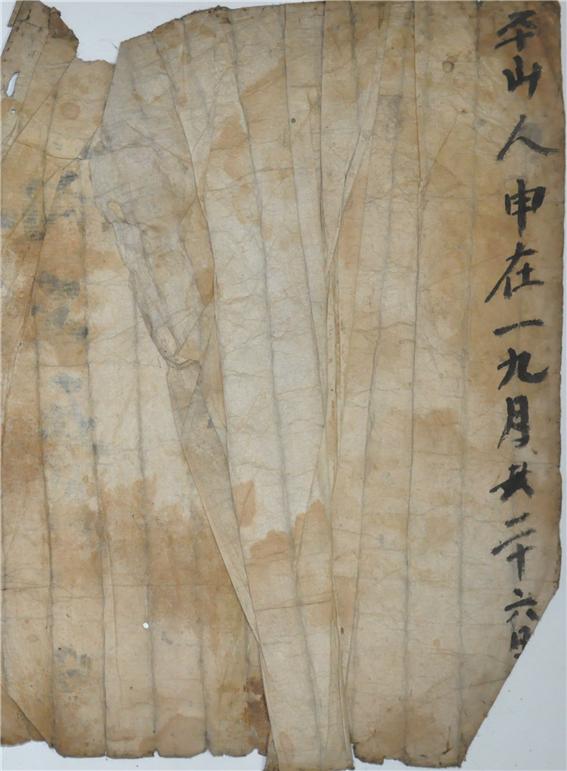 平山人申在一九月其二十六日